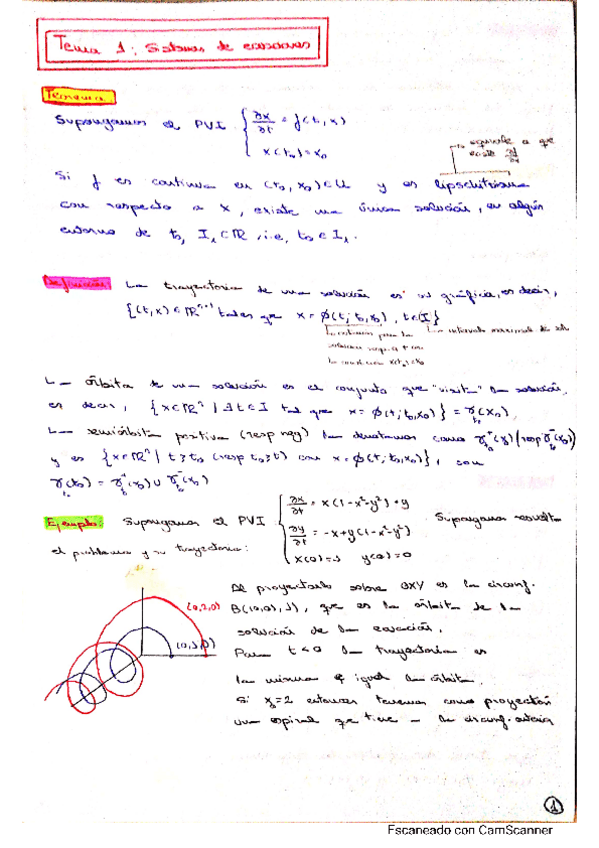 Tema 1: Sistemas de ecuaciones
Teorema
Supongamos el PVI { ∂x/∂t = f(t,x)
x(t₀)=x₀
equivale a que existe ∂f/∂x
Si f es continua en (t₀,x₀)∈U y es lipschitziana
con respecto a x, existe una única solución, en algún
entorno de t₀, I₁⊂ℝ, i.e, t₀∈I₁.
Definición: La trayectoria de una solución es su gráfica, es decir,
{(t,x)∈ℝⁿ⁺¹ tales que x=ϕ(t;t₀,x₀), t∈I}
intervalo maximal de
la condición x(t₀)=x₀
La órbita de una solución es el conjunto que "visita" la solución,
es decir, {x∈ℝⁿ | ∃t∈I tal que x=ϕ(t;t₀,x₀)} = γ_t₀(x₀)
La semiórbita positiva (resp neg) la denotamos como γ⁺_t₀(x₀) (resp γ⁻_t₀(x₀))
y es {x∈ℝⁿ | t≥t₀ (resp t₀≥t) con x=ϕ(t;t₀,x₀)}, con
γ_t₀(x₀) = γ⁺_t₀(x₀) ∪ γ⁻_t₀(x₀)
Ejemplo: Supongamos el PVI { ∂x/∂t = x(1-x²-y²)+y
∂y/∂t = -x+y(1-x²-y²)
x(0)=1 y(0)=0
Supongamos resuelto
el problema y su trayectoria:
(0,2,0)
(0,1,0)
Al proyectarlo sobre OXY es la circunf.
B((0,0),1), que es la órbita de la
solución de la ecuación.
Para t<0 la trayectoria es
la misma e igual la órbita.
Si x₀=2 entonces tenemos como proyección
una espiral que tiene a la circunf. anterior
1
Escaneado con CamScanner